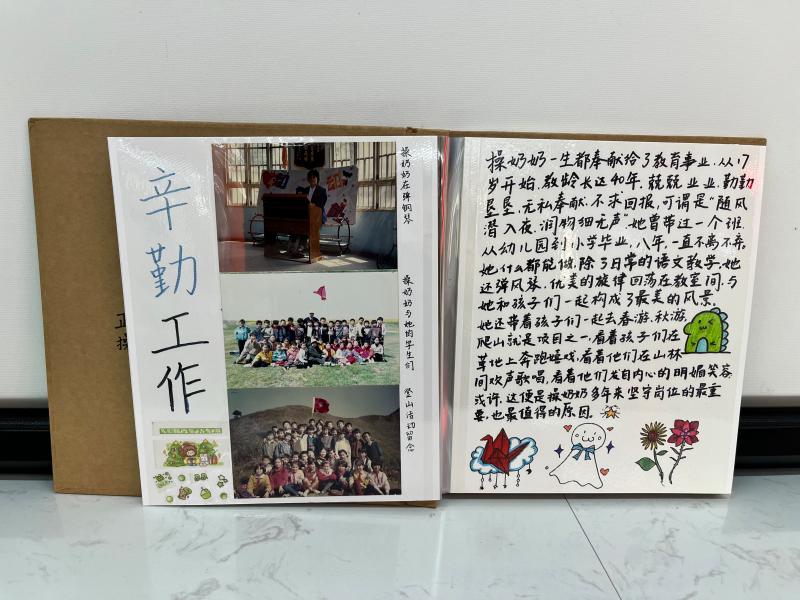 辛勤工作
操奶奶在弹钢琴
操奶奶与她的学生们
登山活动留念
操奶奶一生都奉献给了教育事业，从17
岁开始，教龄长达40年，兢兢业业，勤勤
恳恳，无私奉献，不求回报，可谓是“随风
潜入夜，润物细无声”她曾带过一个班，
从幼儿园到小学毕业，八年，一直不离不弃。
她什么都能做，除了日常的语文教学，她
还弹风琴，优美的旋律回荡在教室间，与
她和孩子们一起构成了最美的风景。
她还带着孩子们一起去春游、秋游，
爬山就是项目之一，看着孩子们在
草地上奔跑嬉戏，看着他们在山林
间欢声歌唱，看着他们发自内心的明媚笑容，
或许，这便是操奶奶多年来坚守岗位的最重
要，也最值得的原因。